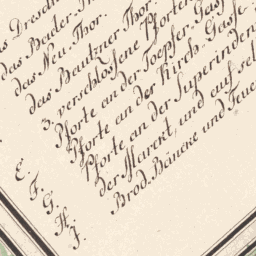 das Dresdn
das Bauter Th
das Neu-Thor.
das Bautzner Thor.
3. verschlossene Pforte
Pforte an der Toepfer-Gasse
Pforte an der Kirch-Gasse
E. Pforte an der Superinden
F. der Marckt, und auf sel
G. Brod-Bäncke und Feue
H.
J.